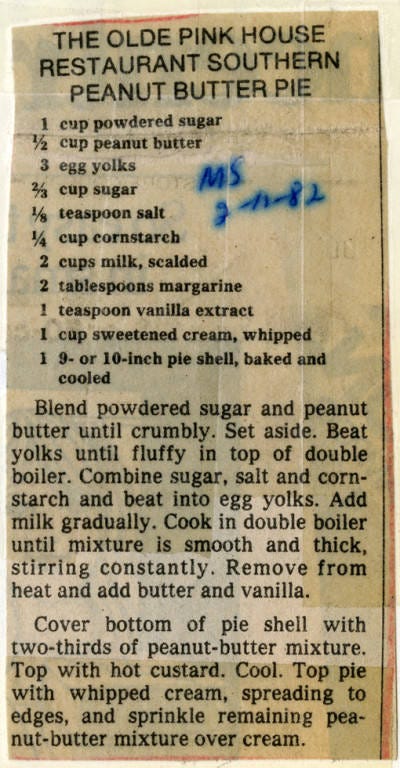 THE OLDE PINK HOUSE
RESTAURANT SOUTHERN
PEANUT BUTTER PIE
1 cup powdered sugar
½ cup peanut butter
3 egg yolks
⅔ cup sugar
⅛ teaspoon salt
¼ cup cornstarch
2 cups milk, scalded
2 tablespoons margarine
1 teaspoon vanilla extract
1 cup sweetened cream, whipped
1 9- or 10-inch pie shell, baked and
cooled
MS
Blend powdered sugar and peanut
butter until crumbly. Set aside. Beat
yolks until fluffy in top of double
boiler. Combine sugar, salt and corn-
starch and beat into egg yolks. Add
milk gradually. Cook in double boiler
until mixture is smooth and thick,
stirring constantly. Remove from
heat and add butter and vanilla.
Cover bottom of pie shell with
two-thirds of peanut-butter mixture.
Top with hot custard. Cool. Top pie
with whipped cream, spreading to
edges, and sprinkle remaining pea-
nut-butter mixture over cream.